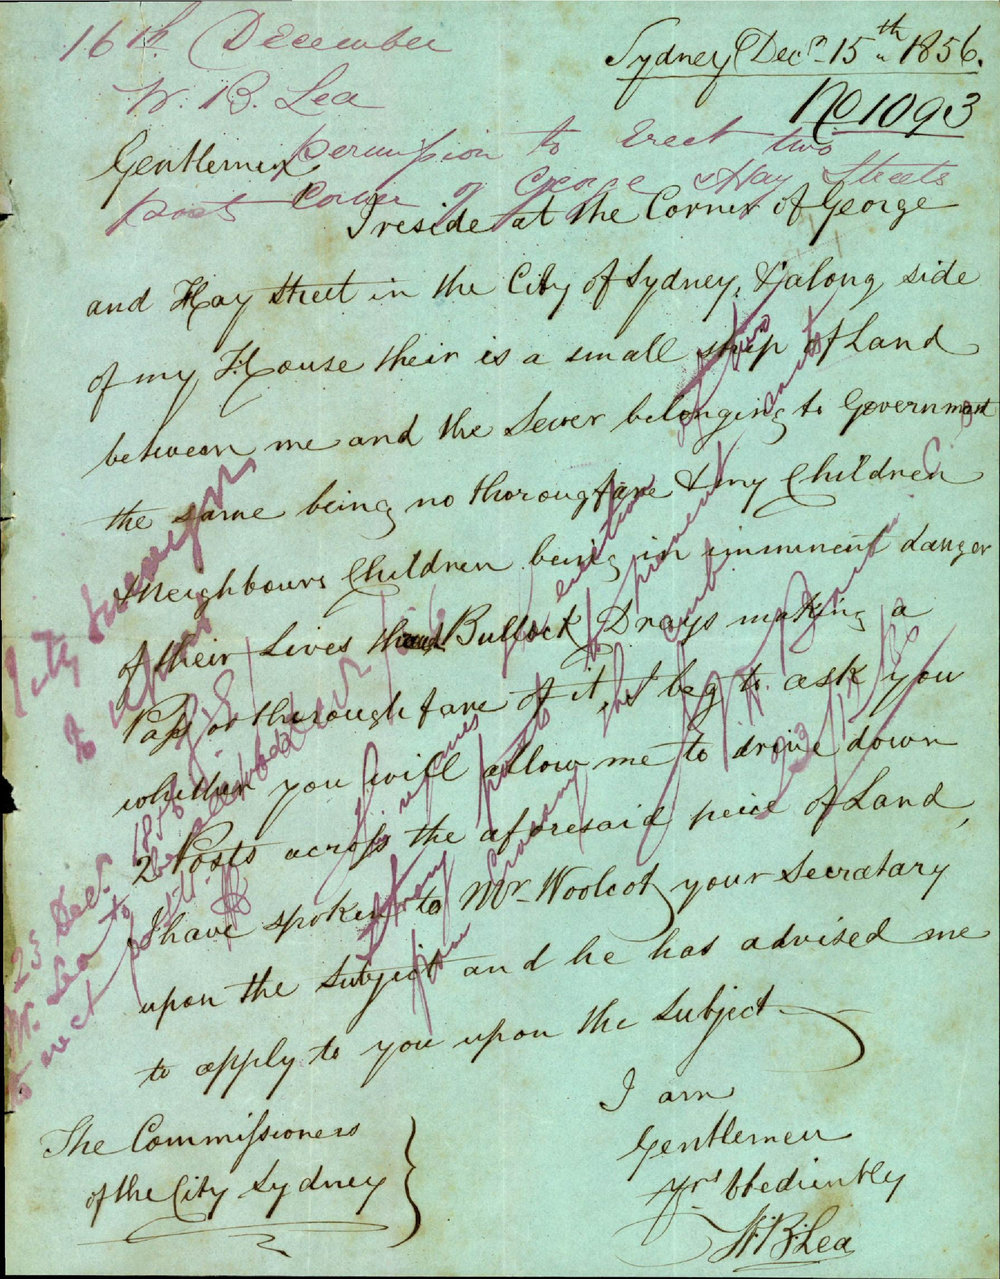 16th December
W. B. Lea
permission to Erect two
posts Corner of George & Hay Streets
Sydney Decr. 15th 1856.
No 1093
Gentlemen
I reside at the Corner of George
and Hay Street in the City of Sydney, & along side
of my House their is a small strip of Land
between me and the Sewer belonging to Government
the same being no thorougfare & my Children
& Neighbours Children being in imminent danger
of their Lives Bullock Drays making a
Pass or thoroughfare of it, I beg to ask you
whether you will allow me to drive down
2 Posts across the aforesaid peice of Land,
I have spoken to Mr. Woolcot your Secratary
upon the Subject and he has advised me
to apply to you upon the Subject
I am
Gentlemen
Yrs Obediently
W. B. Lea
The Commissioners
of the City Sydney
City Surveyor
to
23 Dec. 1856
W. Lea to be allowed
to erect posts